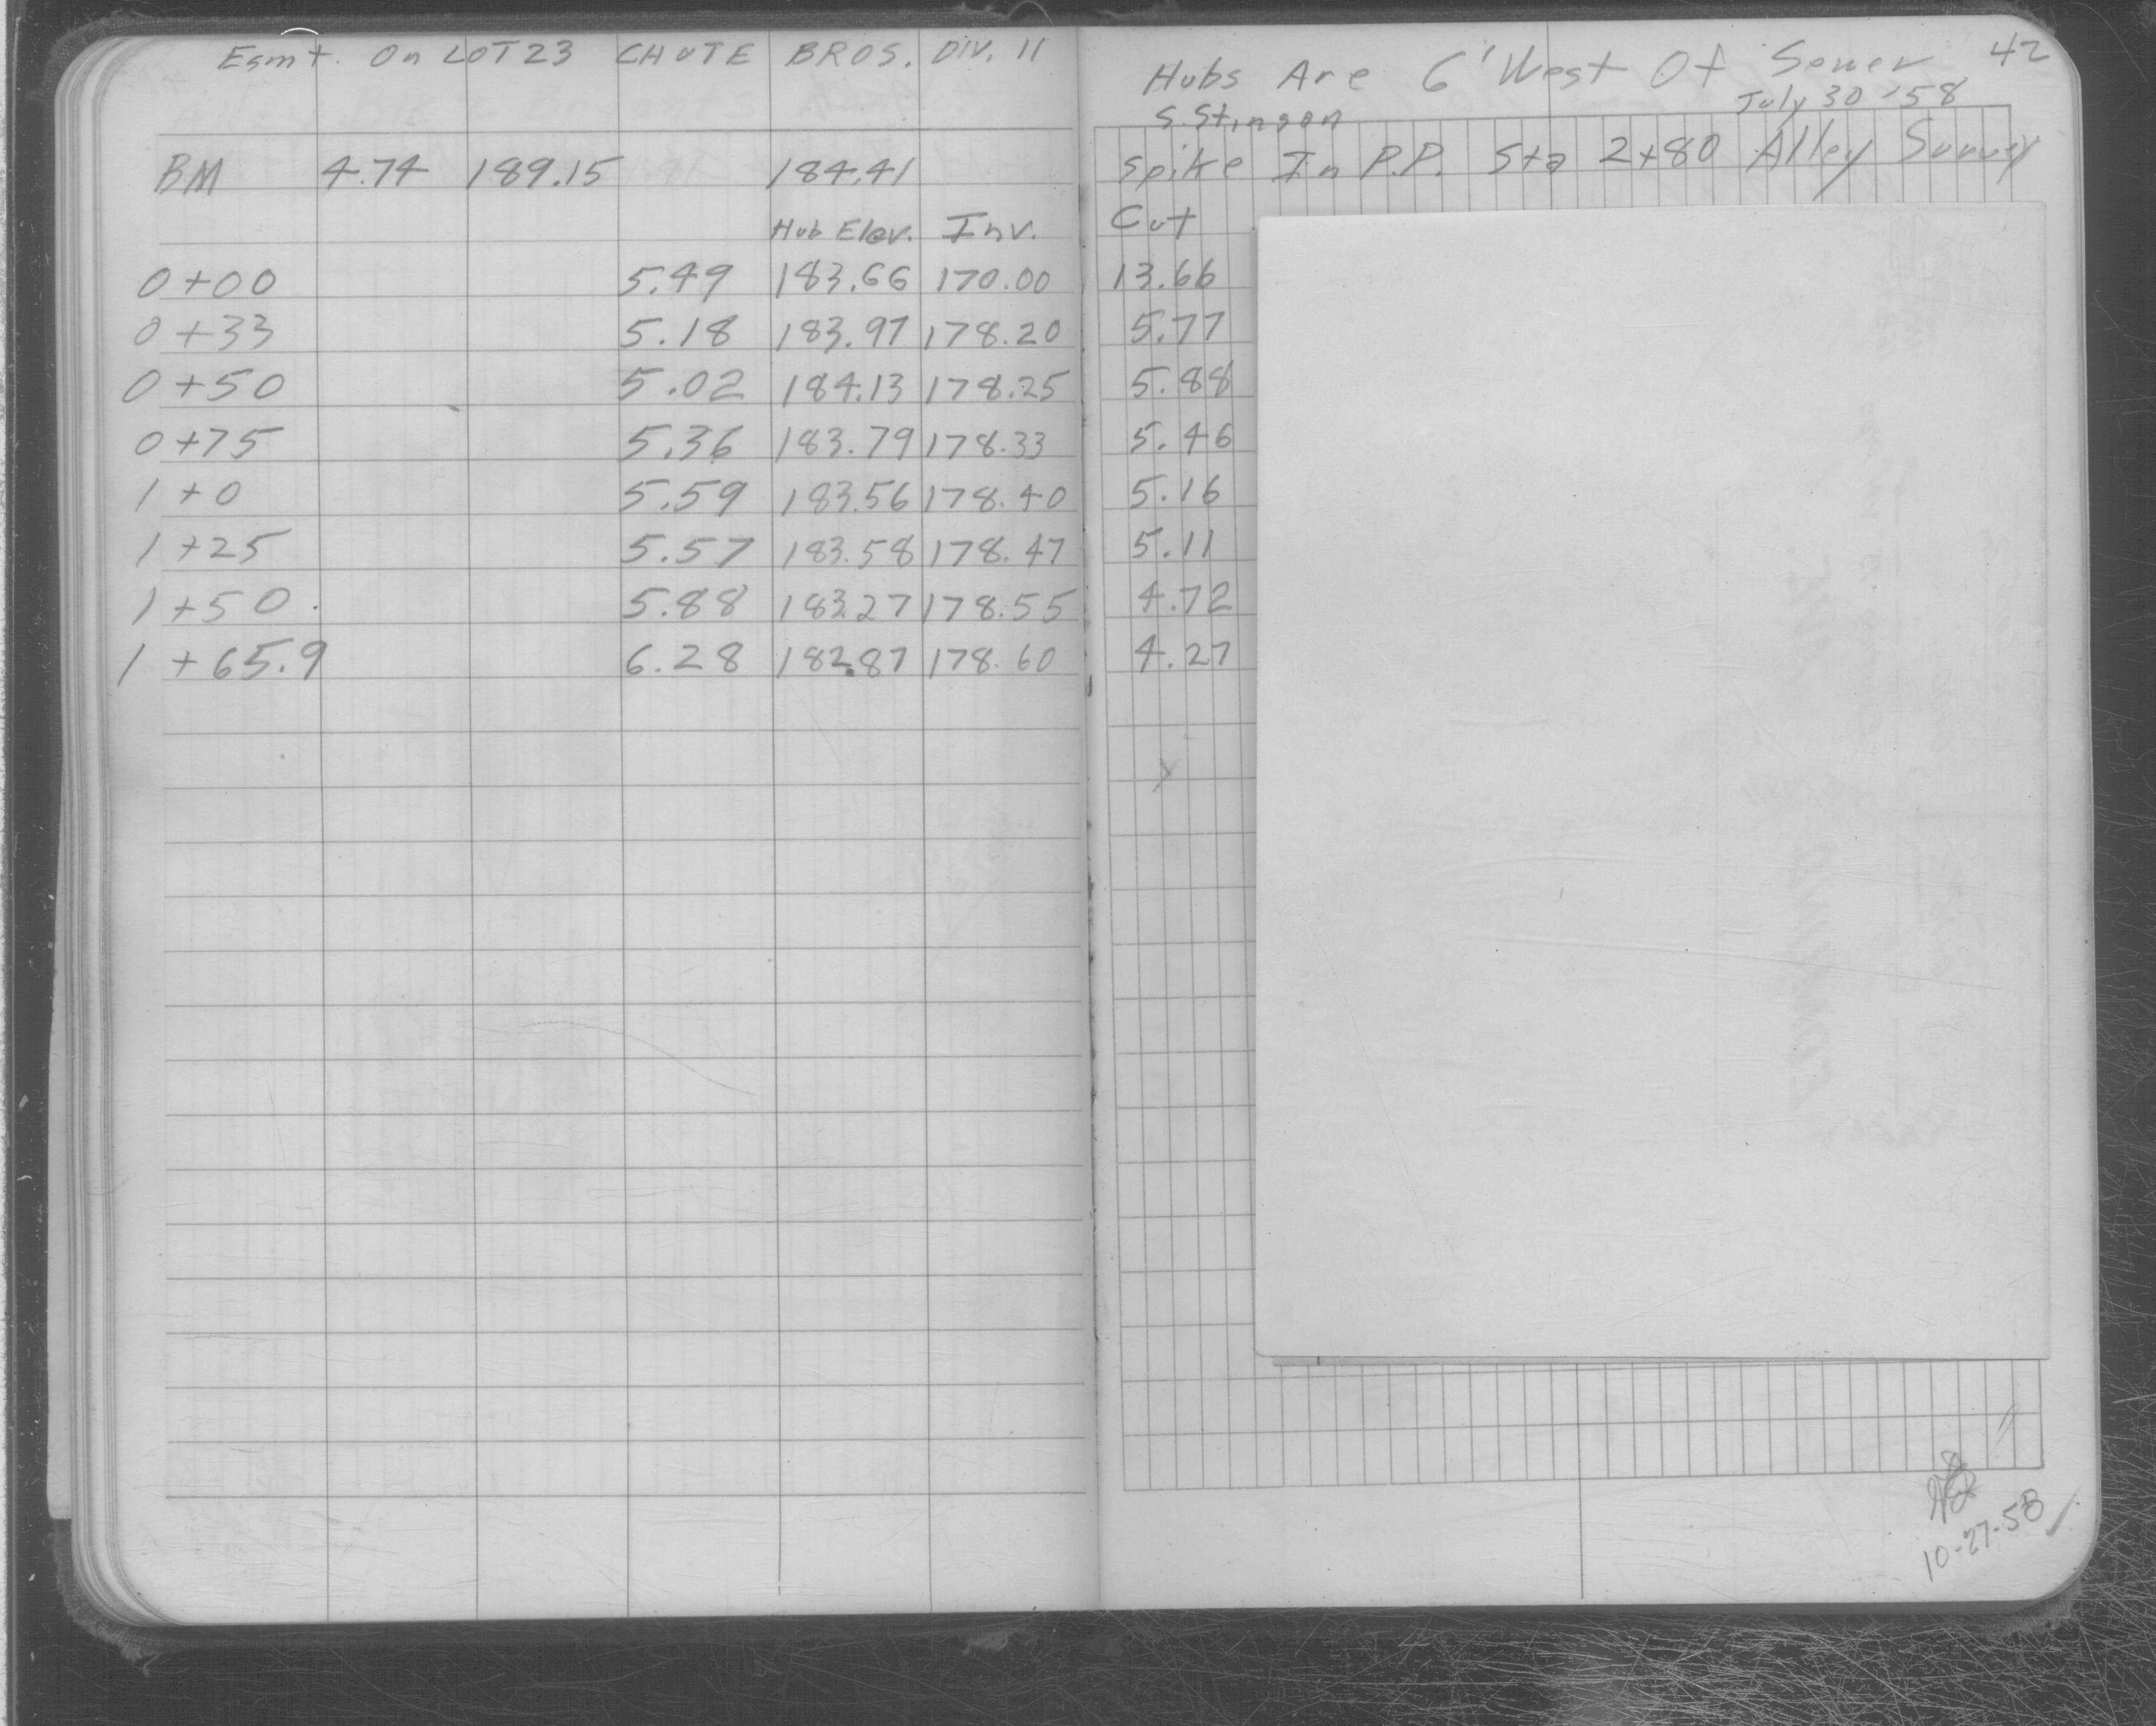 Esmt. On LOT 23 CHUTE BROS. DIV. 11
BM 4.74 189.15 184.41
Hub Elev. Inv.
0+00 5.49 183.66 170.00
0+33 5.18 183.97 178.20
0+50 5.02 184.13 178.25
0+75 5.36 183.79 178.33
1+0 5.59 183.56 178.40
1+25 5.57 183.58 178.47
1+50 5.88 183.27 178.55
1+65.9 6.28 182.87 178.60
42
Hubs Are 6' West Of Sewer
July 30 '58
S. Stinson
Spike In P.P. Sta 2+80 Alley Survey
Cut
13.66
5.77
5.88
5.46
5.16
5.11
4.72
4.27
10-27-58